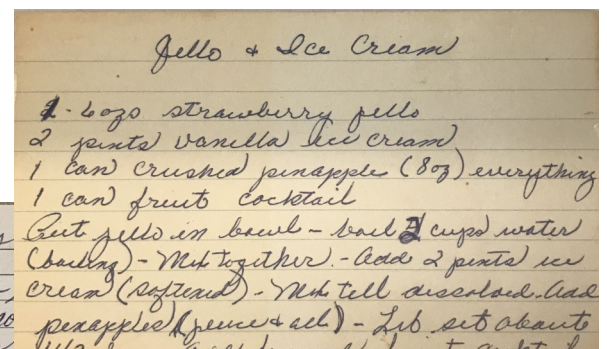 Jello & Ice Cream
1 - 6 ozo strawberry jello
2 pints vanilla ice cream
1 can crushed pineapple (8oz) everything
1 can fruit cocktail
Put jello in bowl - boil 2 cups water
(boiling) - Mix together. - Add 2 pints ice
cream (softened) - Mix till dissolved. Add
pineapples (juice & all) - Let set about